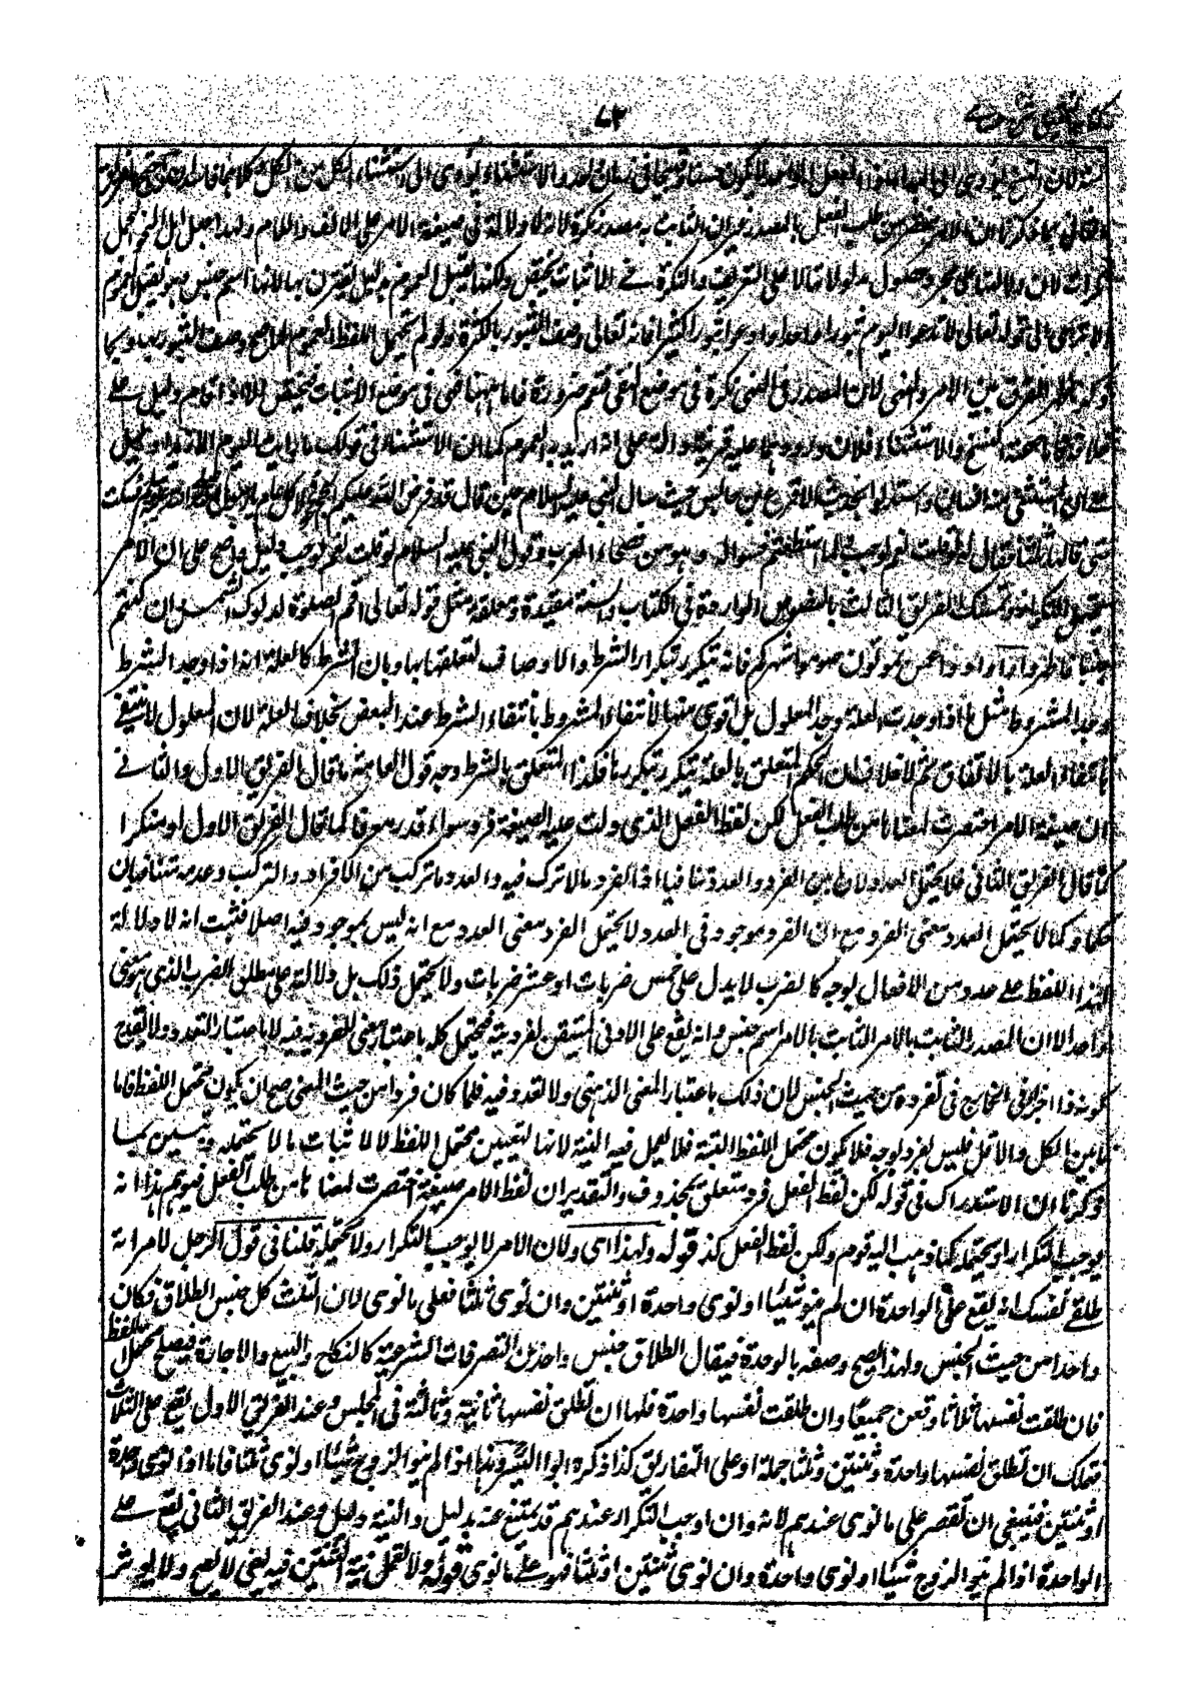 ٨٢
منه لان النسخ يؤدى الى البداء اذا الفعل الواحد لا يكون حسنا وقبيحا فى زمان واحد والاستثناء يؤدى الى استثناء الكل من الكل وكلاهما فاسد
والثانى بما ذكرنا ان الامر مختصر من طلب الفعل بالمصدر غير ان الثابت به مصدر نكرة لانه لا دلالة فى صيغة الامر على الالف واللام ولهذا جعل اهل النحو الجمل
نكرات لان دلالتها على مجرد حصول مدلولاتها لا على التعريف والنكرة فى الاثبات تخص ولكنها تقبل العموم بدليل يقترن بها لانها اسم جنس فهو يقبل العموم
الا ترى الى قوله تعالى لا تدعوا اليوم ثبورا واحدا وادعوا ثبورا كثيرا فانه تعالى وصف الثبور بالكثرة ولو لم يحتمل اللفظ العموم لما صح وصف الثبور به وبما
ذكرنا ظهر الفرق بين الامر والنهى لان المصدر فى النهى نكرة فى موضع النفى فتعم ضرورة فاما ههنا فهى فى موضع الاثبات فتخص الا اذا قام دليل على
خلافه فاما صحة النسخ والاستثناء فلان ورودهما عليه قرينة دالة على انه اريد به العموم كما ان الاستثناء فى قولك ما رايت اليوم الا زيدا دليل
على ان المستثنى منه انسان واستدلوا بحديث الاقرع بن حابس حيث سال النبى عليه السلام حين قال قد فرض الله عليكم الحج فسكت
حتى قالها ثلثا فقال لو قلت نعم لوجب ولما استطعتم فسواله وهو من فصحاء العرب وقول النبى عليه السلام لو قلت نعم لوجب دليل واضح على ان الامر
يحتمل التكرار وتمسك الفريق الثالث بالنصوص الواردة فى الكتاب والسنة مقيدة ومعلقة مثل قوله تعالى اقم الصلوة لدلوك الشمس وان كنتم
جنبا فاطهروا وادوا عمن تمونون صوموا شهركم فانه يتكرر بتكرار الشرط والاوصاف لتعلقها بها وبان الشرط كالعلة انه اذا وجد الشرط
وجد المشروط مثل ما اذا وجدت العلة وجد المعلول بل اقوى منها لانتفاء المشروط بانتفاء الشرط عند البعض بخلاف العلة لان المعلول لا ينتفى
بانتفاء العلة بالاتفاق ثم لا خلاف ان الحكم المتعلق بالعلة يتكرر بتكررها فكذا المتعلق بالشرط وجه قول العامة ما قال الفريق الاول والثانى
ان صيغة الامر اختصرت لمعناها من طلب الفعل لكن لفظ الفعل الذى دلت عليه الصيغة فرد سواء قدر معرفا كما قال الفريق الاول او منكرا
كما قال الفريق الثانى فلا يحتمل العدد لان بين الفرد والعدد تنافيا اذ الفرد ما لا تركب فيه والعدد ما تركب من الافراد والتركب وعدمه متنافيان
فكما لا يحتمل العدد معنى الفرد مع ان الفرد موجود فى العدد لا يحتمل الفرد معنى العدد مع انه ليس بموجود فيه اصلا فثبت انه لا دلالة
لهذا اللفظ على عدد من الافعال بوجه كالضرب لا يدل على خمس ضربات او عشر ضربات ولا يحتمل ذلك بل دلالته على مطلق الضرب الذى هو معنى
واحد الا ان المصدر الثابت بالامر اسم جنس وانه يقع على الادنى المتيقن لفرديته فيحتمل كله باعتبار معنى الفردية فيه لا باعتبار التعدد ولا يقدح
كونه ذا اجزاء فى الخارج فى تفرده من حيث الجنس لان ذلك باعتبار المعنى الذهنى ولا تعدد فيه فلما كان فردا من حيث المعنى صح ان يكون محتمل اللفظ فاما
ما بين الكل والاقل فليس بفرد بوجه فلا يكون محتمل اللفظ البتة فلا يعمل فيه النية لانها لتعيين محتمل اللفظ لا لاثبات ما لا يحتمله وتبين بما
ذكرنا ان الاستدراك فى قوله لكن لفظ الفعل فرد متعلق بمحذوف والتقدير ان لفظ الامر صيغة اختصرت لمعناها من طلب الفعل فتوهم بهذا انه
يوجب التكرار او يحتمله كما ذهب اليه قوم ولكن لفظ الفعل كذ قوله ولهذا اى ولان الامر لا يوجب التكرار ولا يحتمله قلنا فى قول الرجل لامراته
طلقى نفسك انه يقع على الواحدة ان لم ينو شيئا او نوى واحدة او ثنتين وان نوى ثلثا فعلى ما نوى لان الثلث كل جنس الطلاق فكان
واحدا من حيث الجنس ولهذا يصح وصفه بالوحدة فيقال الطلاق جنس واحد من التصرفات الشرعية كالنكاح والبيع والاجارة فيصلح محتمل اللفظ
فان طلقت نفسها ثلاثا وقعن جميعا وان طلقت نفسها واحدة فلها ان تطلق نفسها ثانية وثالثة فى المجلس وعند الفريق الاول يقع على الثلاث
فتملك ان تطلق نفسها واحدة وثنتين وثلثا جملة او على التفاريق كذا ذكره ابو اليسر وهذا اذا لم ينو الزوج شيئا او نوى ثلثا فاما اذا نوى واحدة
او ثنتين فينبغى ان تقتصر على ما نوى عندهم لانه وان اوجب التكرار عندهم قد يمتنع عنه بدليل والنية دليل وعند الفريق الثانى يقع على
الواحدة اذا لم ينو الزوج شيئا او نوى واحدة وان نوى ثنتين او ثلثا فهو على ما نوى قوله ولا تعمل نية الثنتين فيه يعنى لا يصح ولا يؤثر